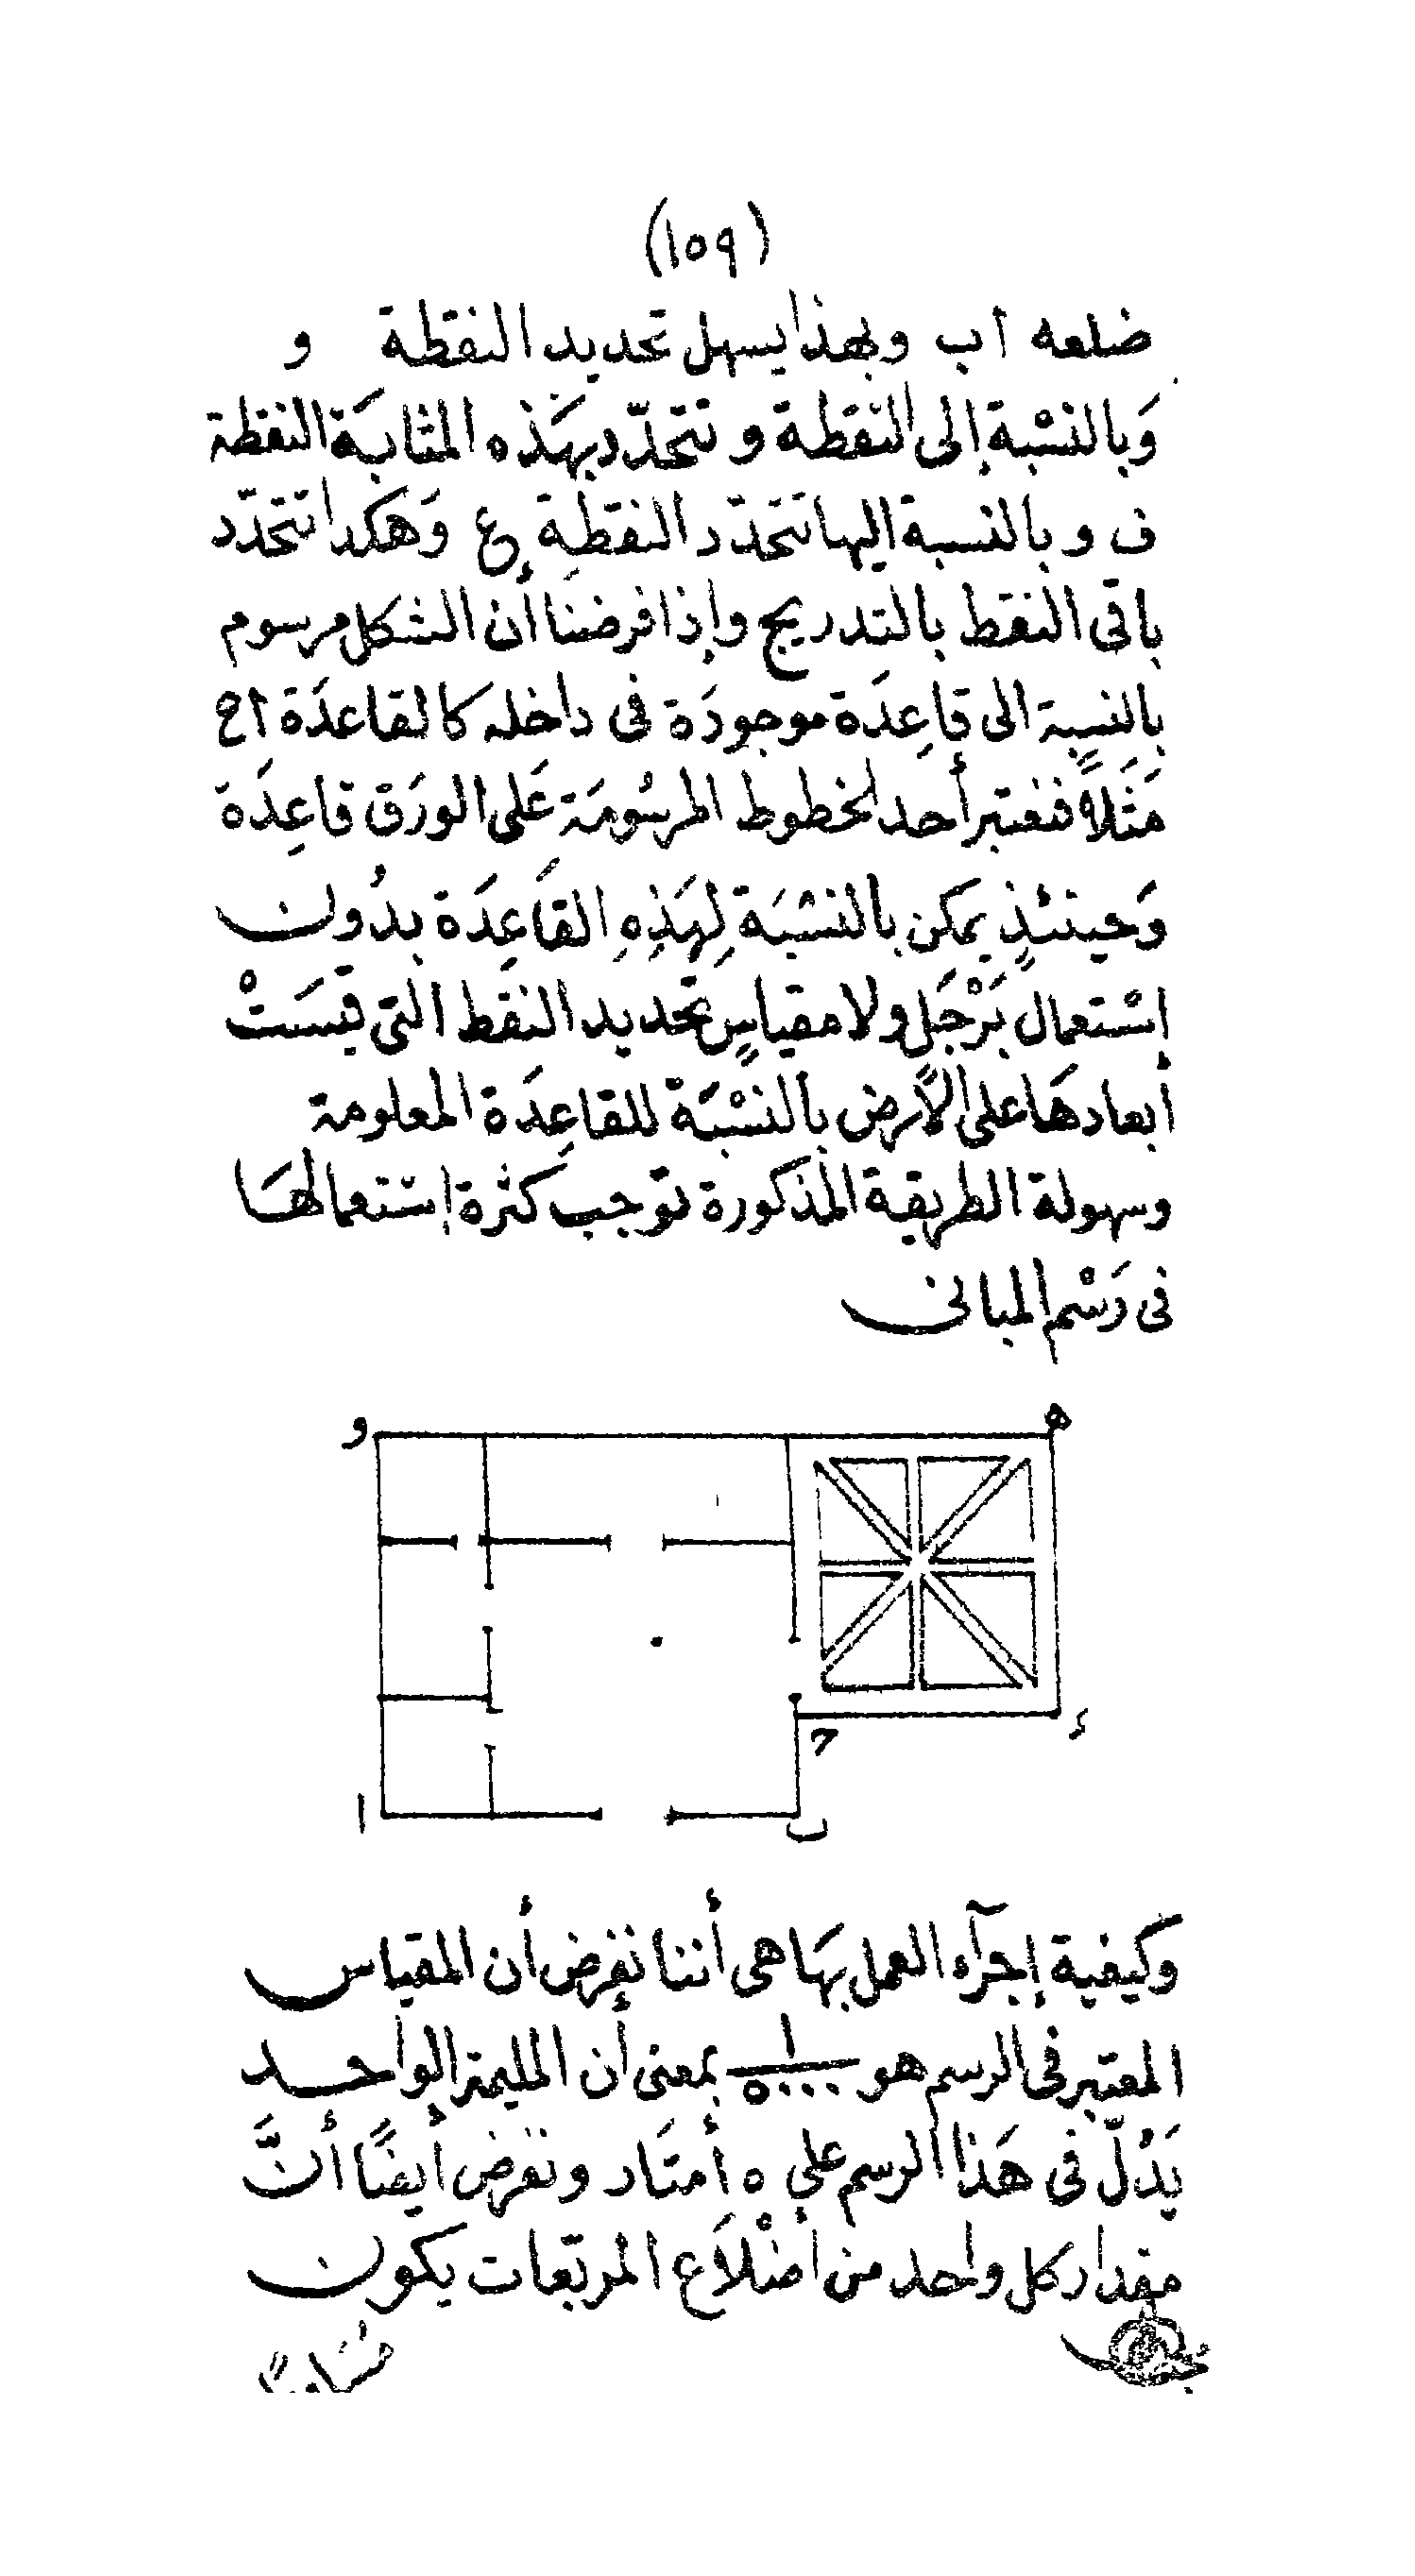 (١٥٩)
ضلعه اب وبهذا يسهل تحديد النقطة و
وَبالنسْبة إلى النقطة و تتحدّد بهَذه المثابَة النقطة
ف و بالنسبة اليها تتحدّد النقطة ع وَهكدا تتحدّد
باقى النقط بالتدريج وإذا فرضنا أن الشكل مرسوم
بالنسبة الى قاعِدَة موجودَة فى داخله كالقاعدَة اح
مَثَلاً فنعتبر أحد الخطوط المرسُومَة عَلى الورَق قاعِدَة
وَحينئذٍ يمكن بالنسْبَة لِهَذِهِ القاعِدَة بدُون
إسْتعمال بَرْجَل ولا مقياسٍ تحديد النقط التى قيسَتْ
أبعادهَا على الأرض بالنسْبَة للقاعِدَة المعلومة
وسهولة الطريقة المذكورة توجب كثرة إستعمالهَا
فى رَسْم المبانى
و
ه
ح
ء
ا
ب
وكيفية إجرآء العمل بهَا هى أننا نفرض أن المقياس
المعتبر فى الرسم هو ١/٥٠٠٠ بمعنى أن المليمتر الواحد
يَدُلّ فى هَذا الرسم على ٥ أمتَار ونفرض أيضًا أنَّ
مقدار كل واحد من أضْلاَع المربّعات يكون